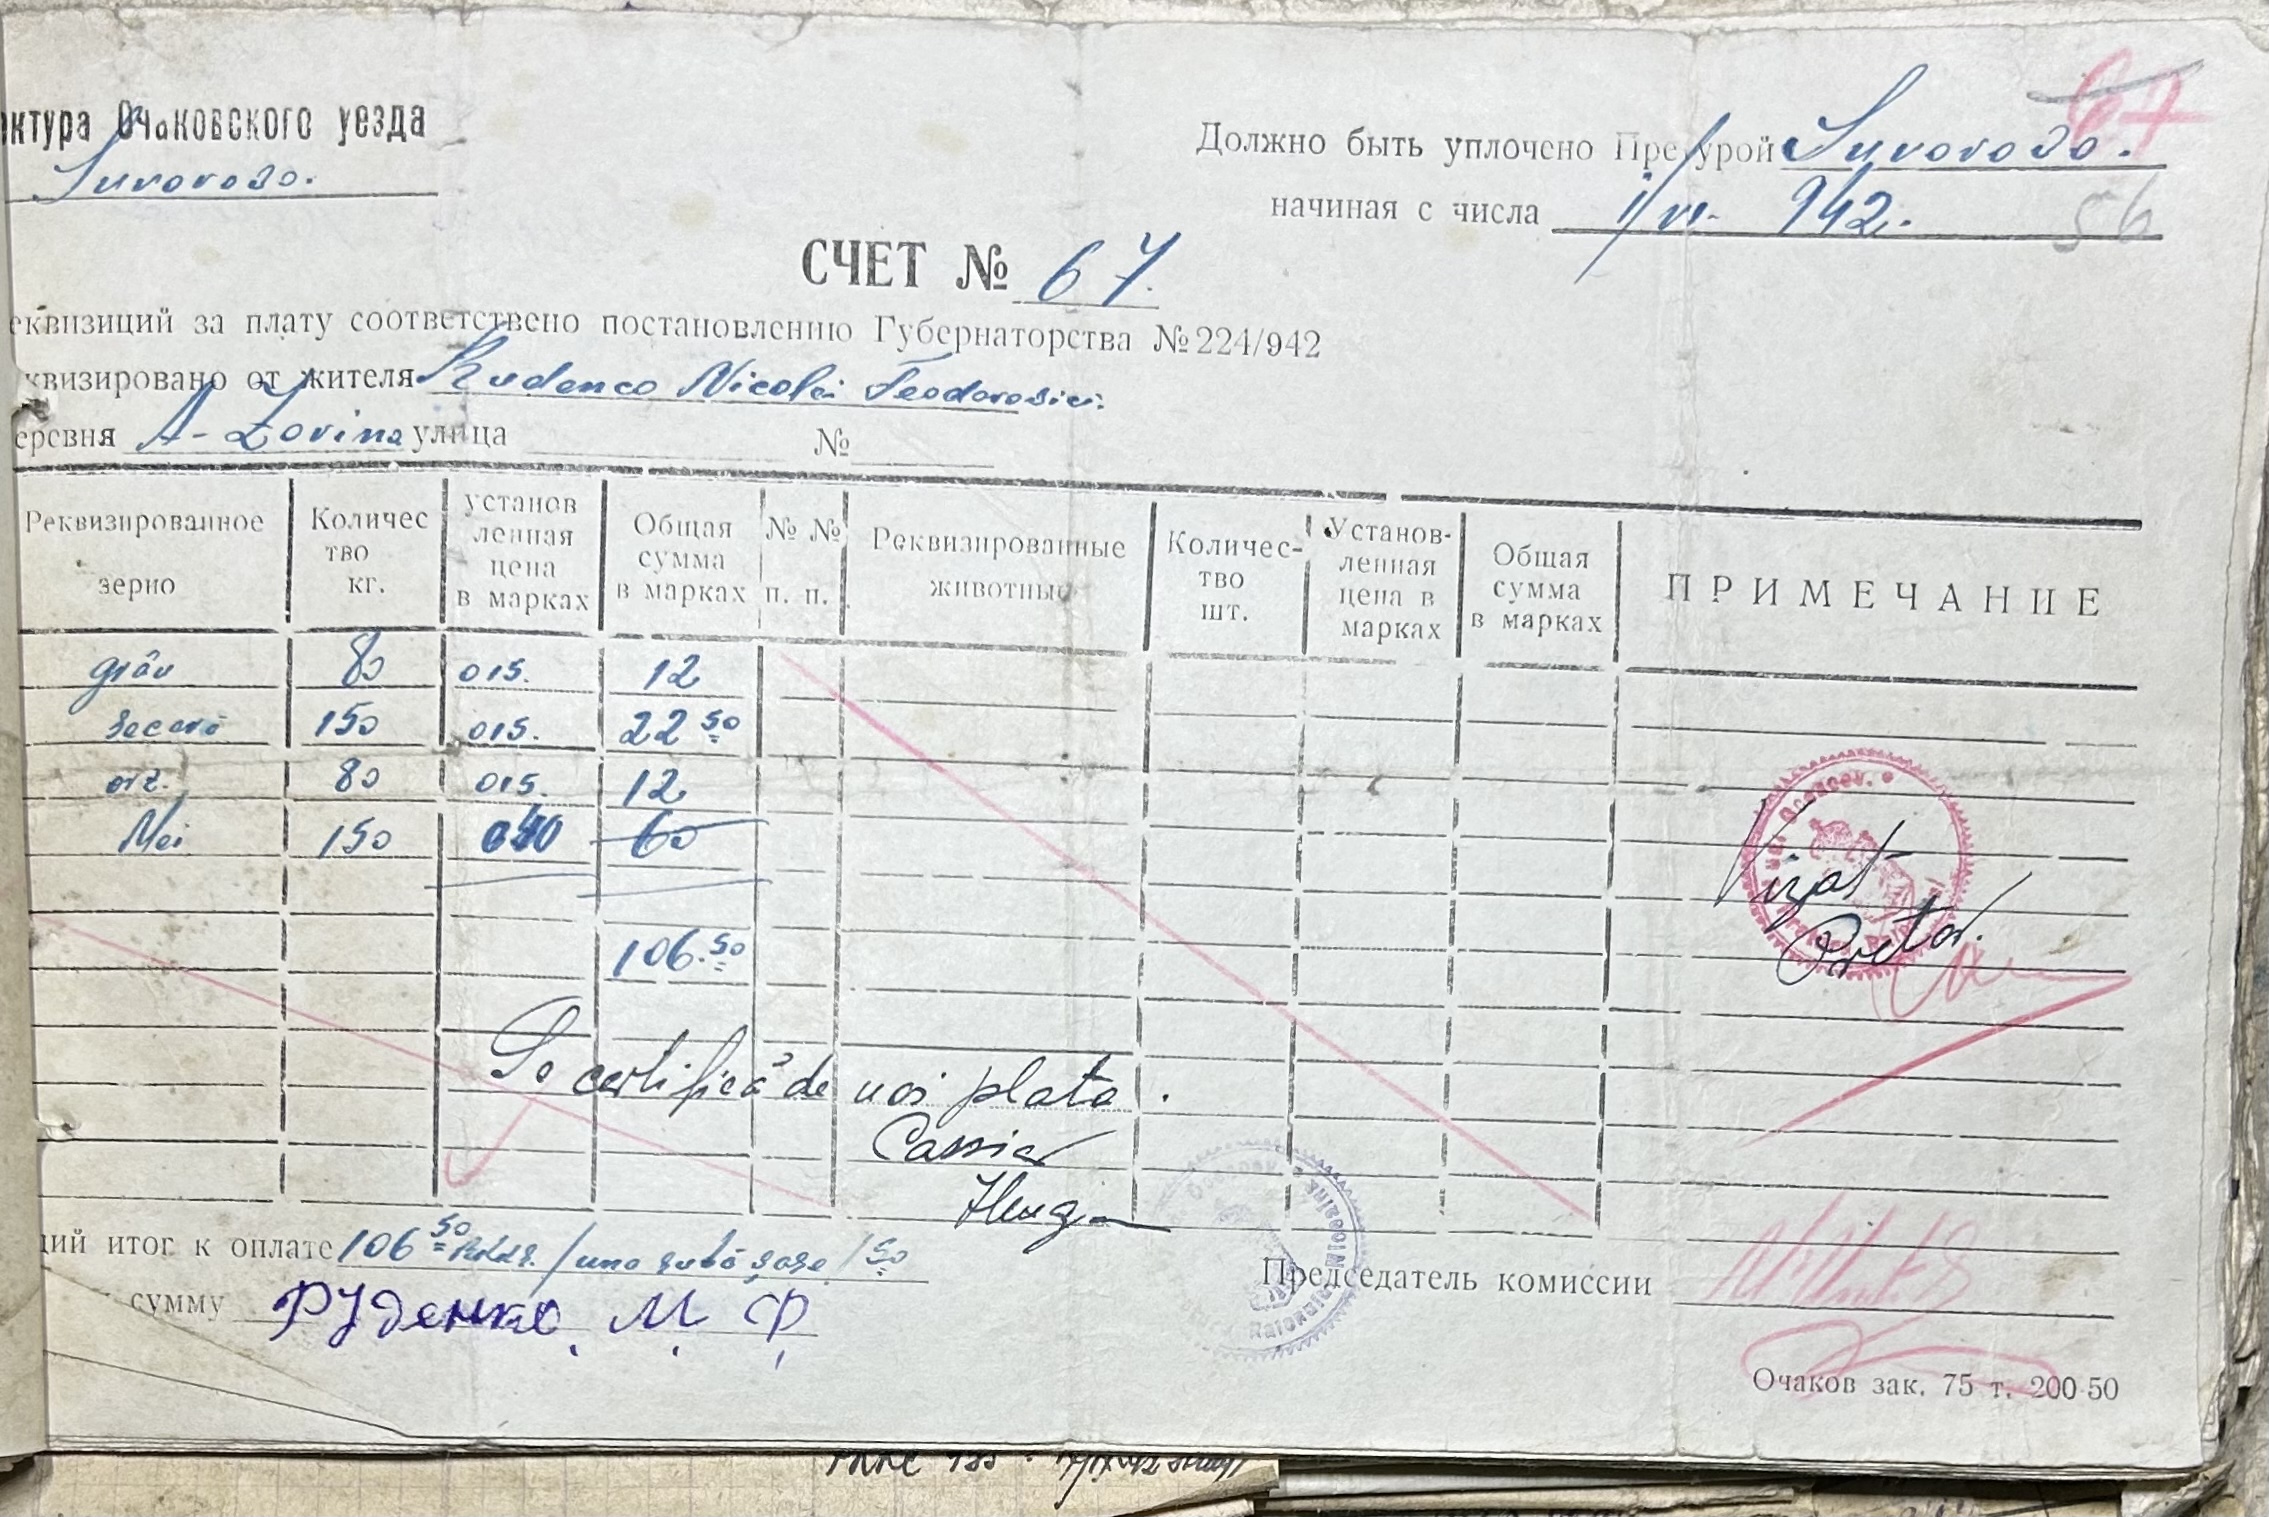 ктура Очаковского уезда
Suvorovo.
67
Должно быть уплочено Претурой Suvorovo.
начиная с числа 1/VI- 942.
56
СЧЕТ № 67.
еквизиций за плату соответствено постановлению Губернаторства № 224/942
квизировано от жителя Rudenco Nicolai Feodorovici
еревня улица №
Реквизированное зерно Количес тво кг. установ ленная цена в марках Общая сумма в марках № № п. п. Реквизированные животные Количес- тво шт. Установ- ленная цена в марках Общая сумма в марках ПРИМЕЧАНИЕ
grâu 80 015. 12
secară 150 015. 22 50
orz. 80 015. 12
Mei 150 040 60
106.50
Vizat
Pretor.
Se certifică de noi plata.
Cassier
щий итог к оплате 106 50 /una sută șase/50
сумму Руденко, М. Ф,
Председатель комиссии
Очаков зак. 75 т. 200-50